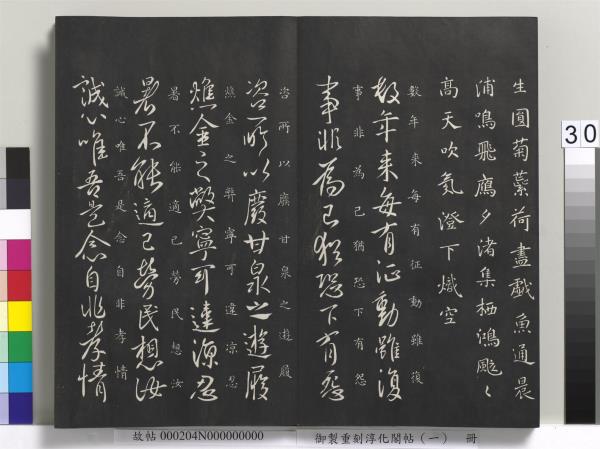 生圓菊蘂荷盡戲魚通晨
浦鳴飛鷹夕渚集栖鴻颸〻
高天吹氣澄下熾空
數年來每有征動雖復
數年來每有征動雖復
事非為己猶恐下有怨
事非為己猶恐下有怨
咨所以廢甘泉之遊履
咨所以廢甘泉之遊履
燋金之弊寧可違涼忍
燋金之弊寧可違涼忍
暑不能適己勞民想汝
暑不能適己勞民想汝
誠心唯吾是念自非孝情
誠心唯吾是念自非孝情
30
故帖 000204N000000000
御製重刻淳化閣帖（一） 冊